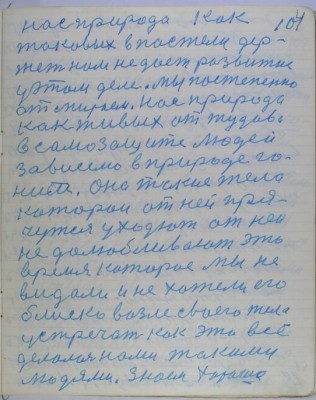 нас природа как 104
таковых в постели дер-
жет нам не дает развитие
у этом деле. Мы постепенно
отмираем. Нас природа
как живых от туда в
в самозащите людей
зависимо в природе го-
нит. Она такие тела
которои от ней пря-
чутся уходют от ней
не долюбливают это
время которое мы не
видали и не хотели его
близко возле своего тела
устречат как это всё
делалось нами такими
людями. Знаем хорошо